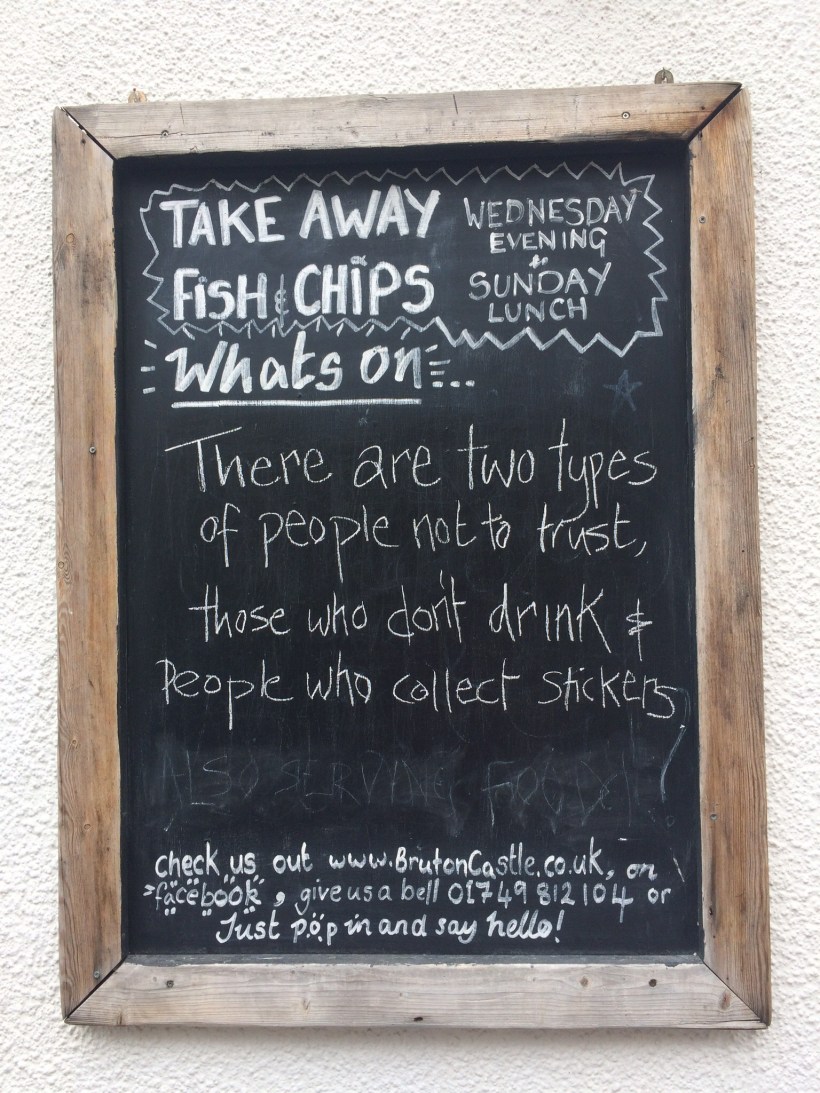 TAKE AWAY
FISH & CHIPS
WEDNESDAY
EVENING
&
SUNDAY
LUNCH
Whats on...
There are two types
of people not to trust,
those who don't drink &
People who collect stickers
ALSO SERVING FOOD!
check us out www.BrutonCastle.co.uk, on
facebook, give us a bell 01749 812104 or
Just pop in and say hello!